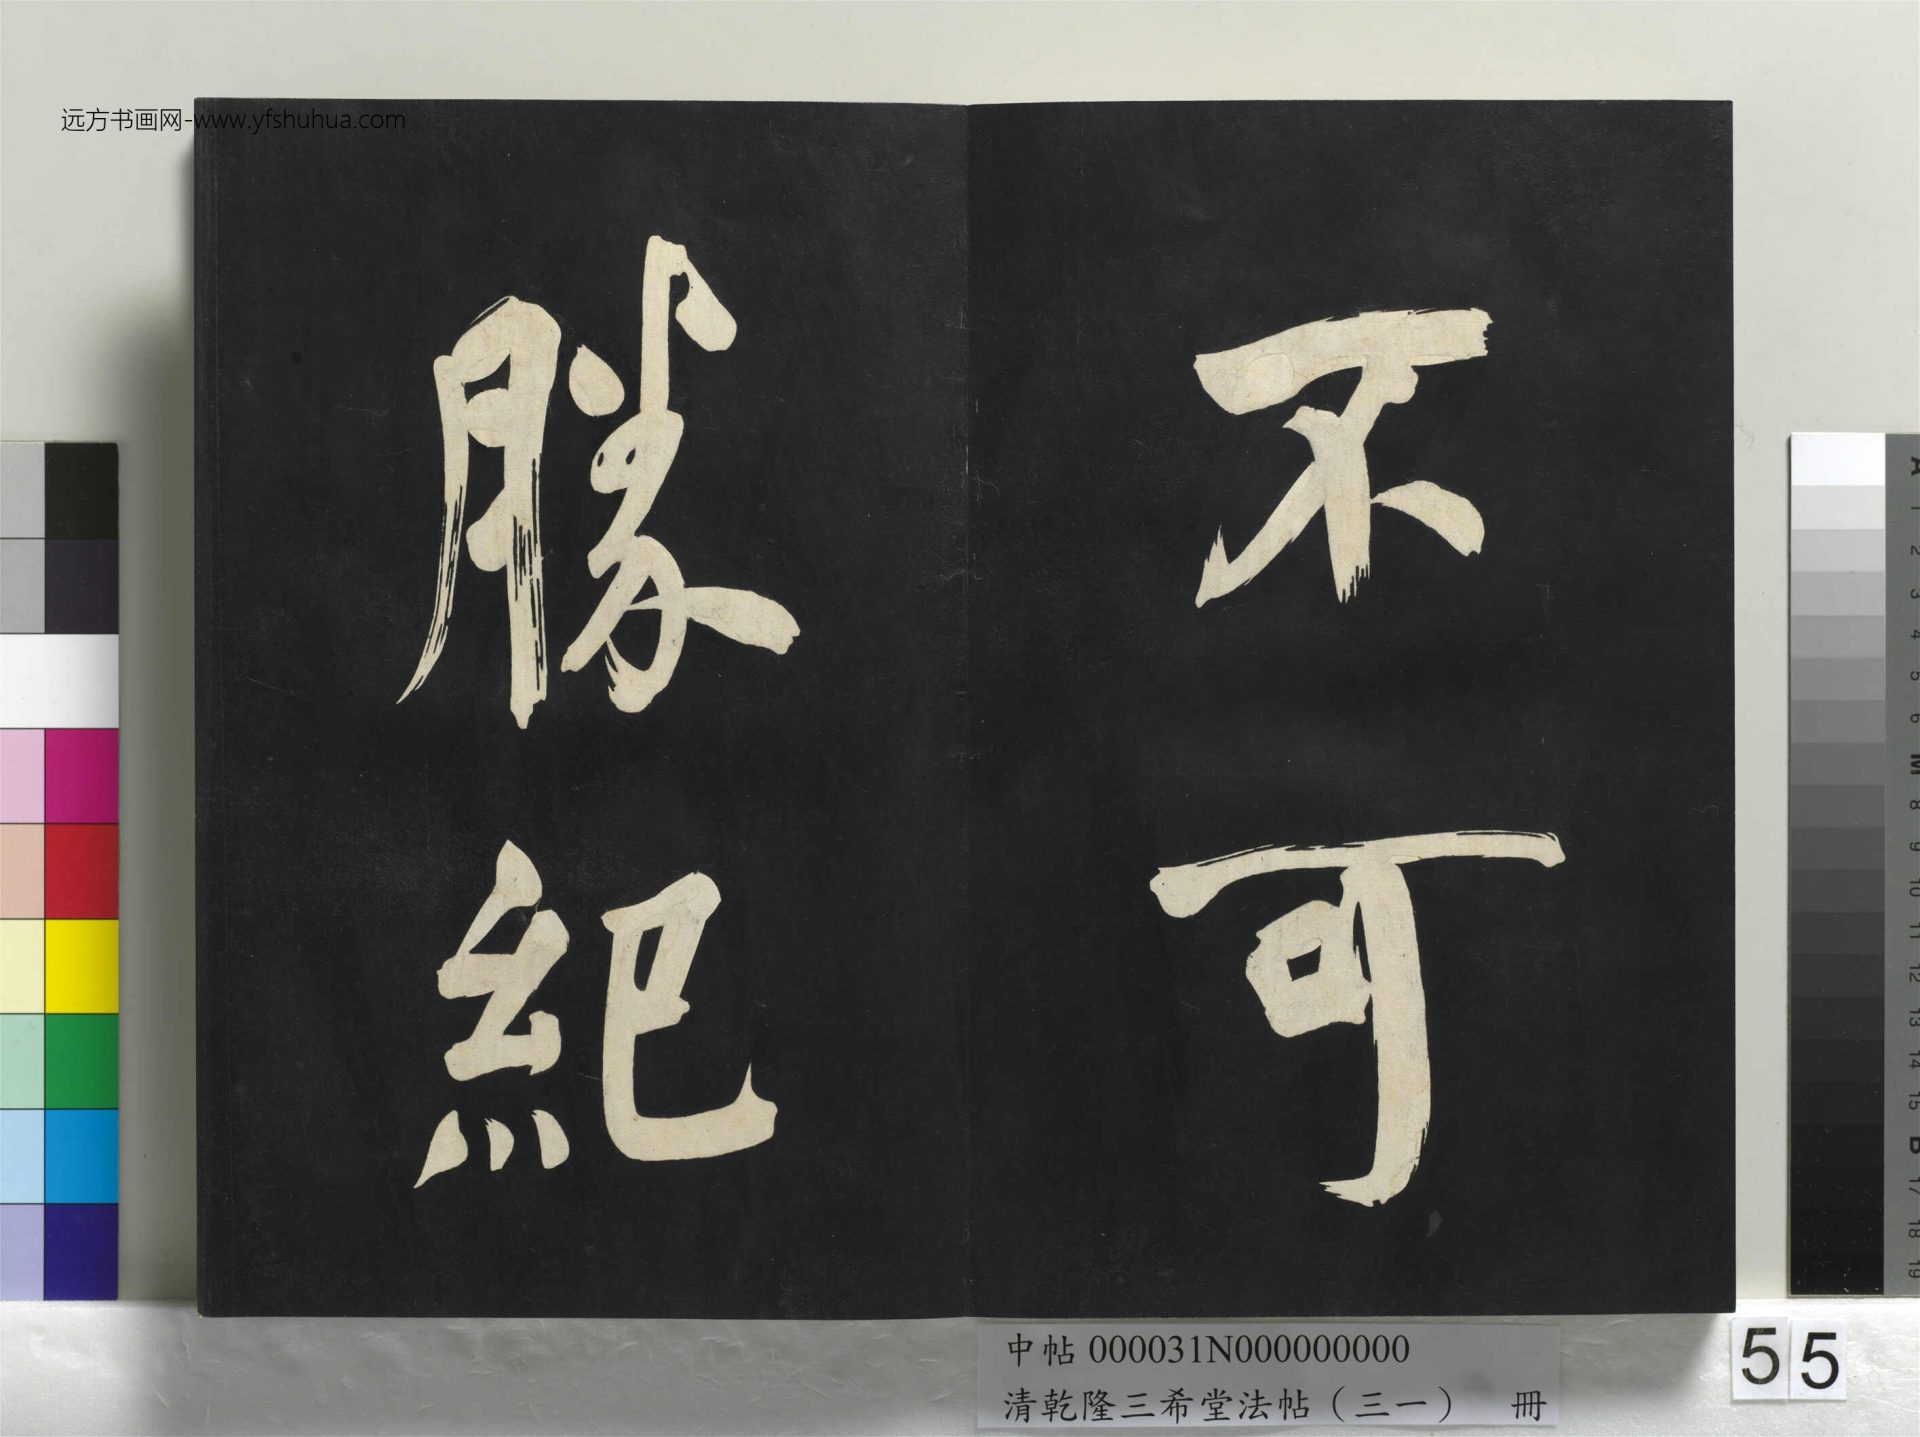 远方书画网-www.yfshuhua.com
不可
勝紀
中帖 000031N000000000
清乾隆三希堂法帖（三一） 冊
55
A 1 2 3 4 5 6 M 8 9 10 11 12 13 14 15 B 17 18 19